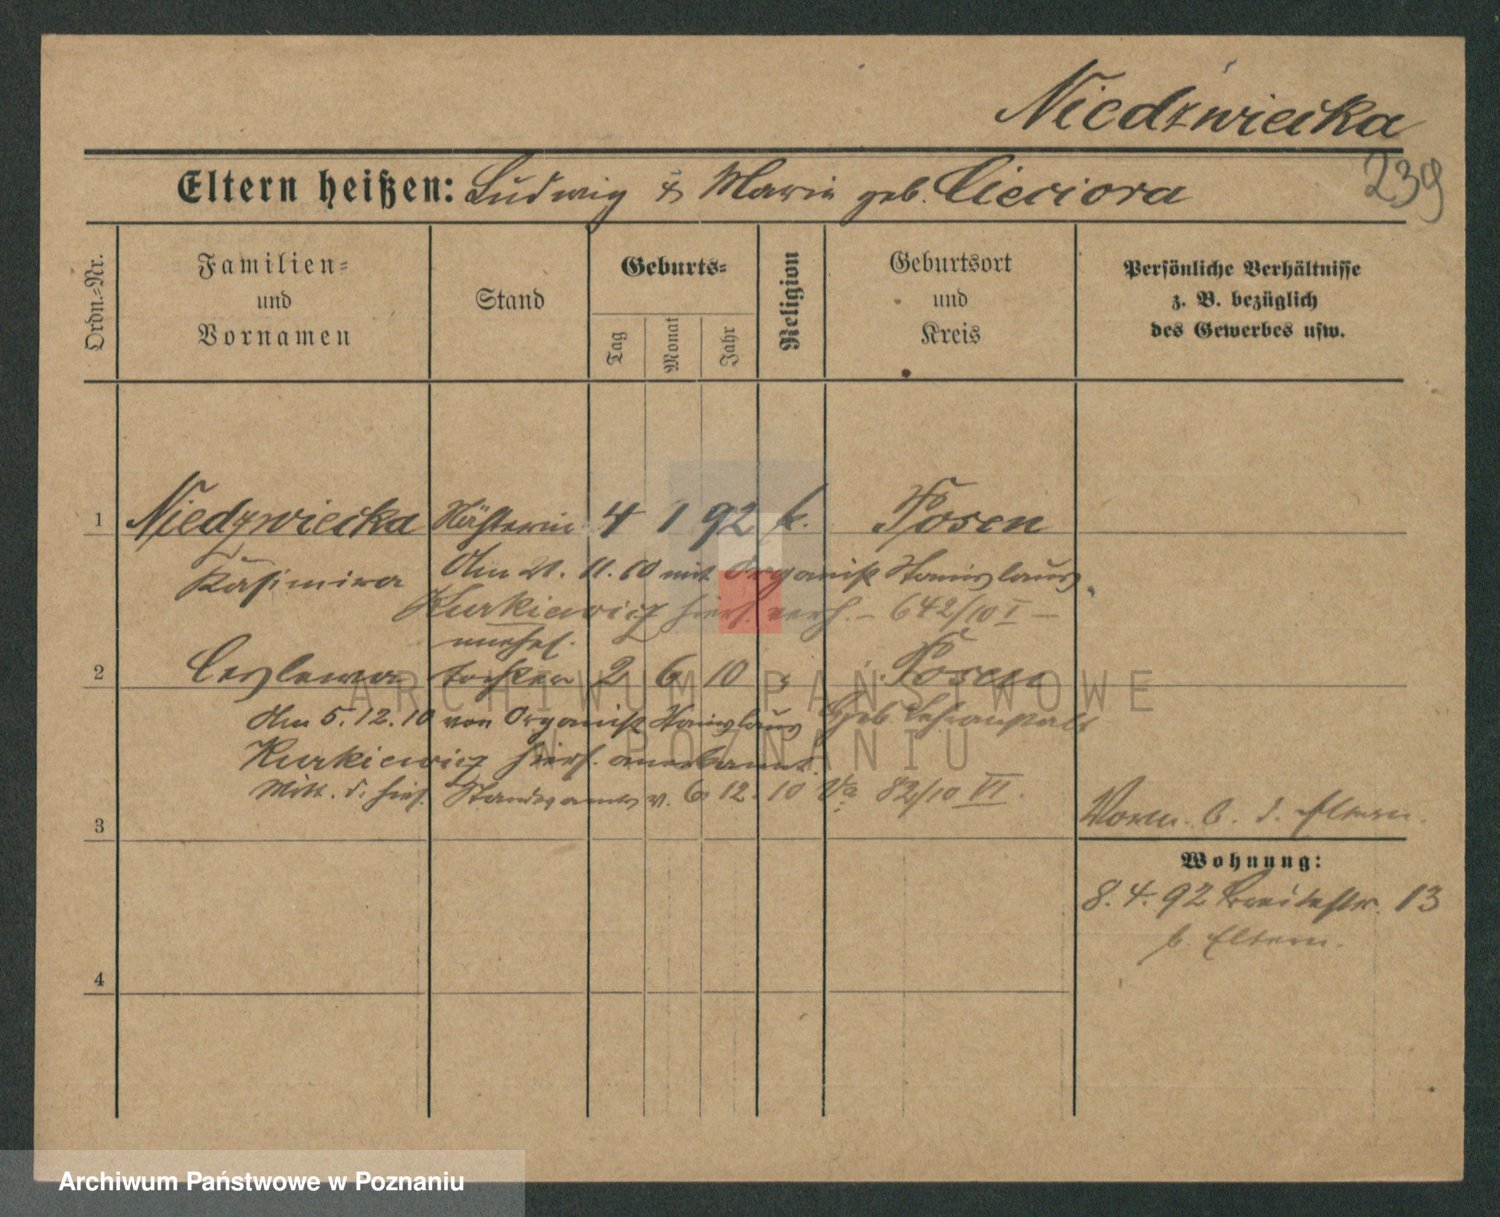 Niedzwiecka
239
Eltern heißen: Ludwig u Marie geb. Cieciora
Ordn.-Nr.
Familien-
und
Vornamen
Stand
Geburts-
Tag
Monat
Jahr
Religion
Geburtsort
und
Kreis
Persönliche Verhältnisse
z. B. bezüglich
des Gewerbes usw.
1 Niedzwiecka Nähterin 4 1 92 k. Posen
Kasimira Am 21. 11. 10 mit Organist Stanislaus
Kurkiewicz hies. verh. – 642/10 I –
unehel.
2 Czeslawa Tochter 2 6 10 Posen
Am 5. 12. 10 von Organist Stanislaus
Kurkiewicz hies. anerkannt.
Mitt. d. hies. Standesamts v. 6 12. 10 Va 82/10 VI.
3
Vorm. b. d. Eltern.
Wohnung:
8. 4. 92 Breitestr. 13
b. Eltern.
4
ARCHIWUM PAŃSTWOWE
W POZNANIU
Archiwum Państwowe w Poznaniu